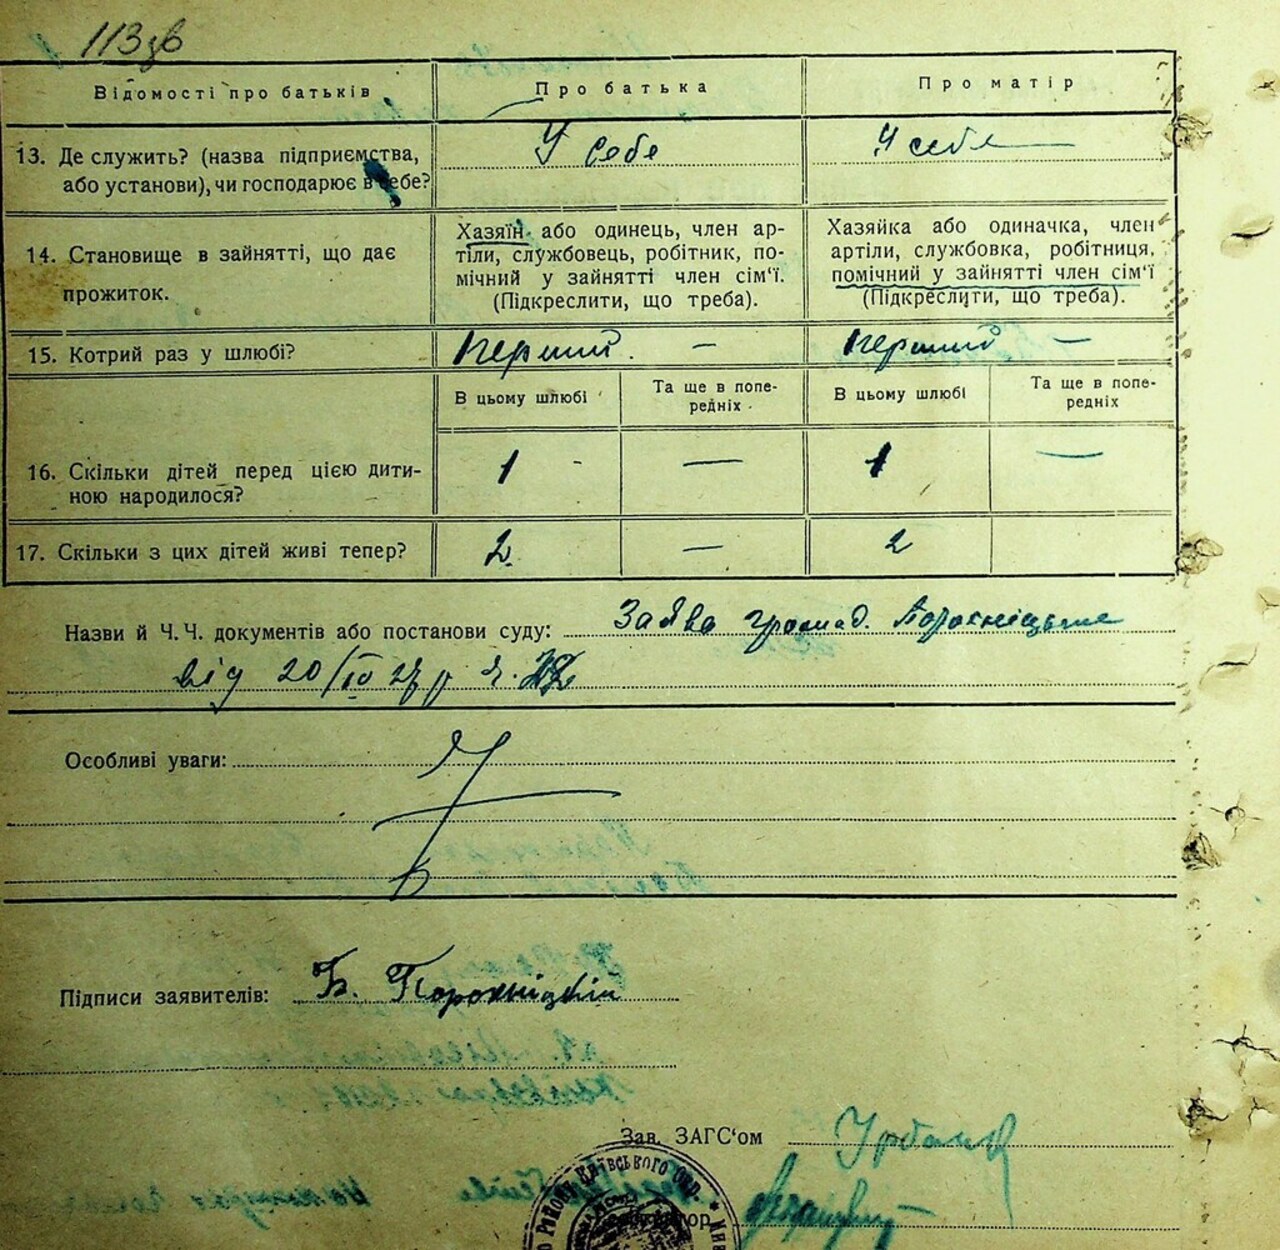 113зв
Відомості про батьків
Про батька
Про матір
13. Де служить? (назва підприємства,
або установи), чи господарює в себе?
У себе
У себе
14. Становище в зайнятті, що дає
прожиток.
Хазяїн або одинець, член ар-
тіли, службовець, робітник, по-
мічний у зайнятті член сім'ї.
(Підкреслити, що треба).
Хазяйка або одиначка, член
артіли, службовка, робітниця,
помічний у зайнятті член сім'ї
(Підкреслити, що треба).
15. Котрий раз у шлюбі?
Перший. —
Перший —
В цьому шлюбі
Та ще в попе-
редніх
В цьому шлюбі
Та ще в попе-
редніх
16. Скільки дітей перед цією дити-
ною народилося?
1 — 1 —
17. Скільки з цих дітей живі тепер?
2 — 2
Назви й Ч.Ч. документів або постанови суду: Заява громад.
від 20/IV 27 р
Особливі уваги:
Підписи заявителів: Б. Порохніцкій
Зав. ЗАГС'ом
РАЙОНУ КИЇВСЬКОГО ОКР.